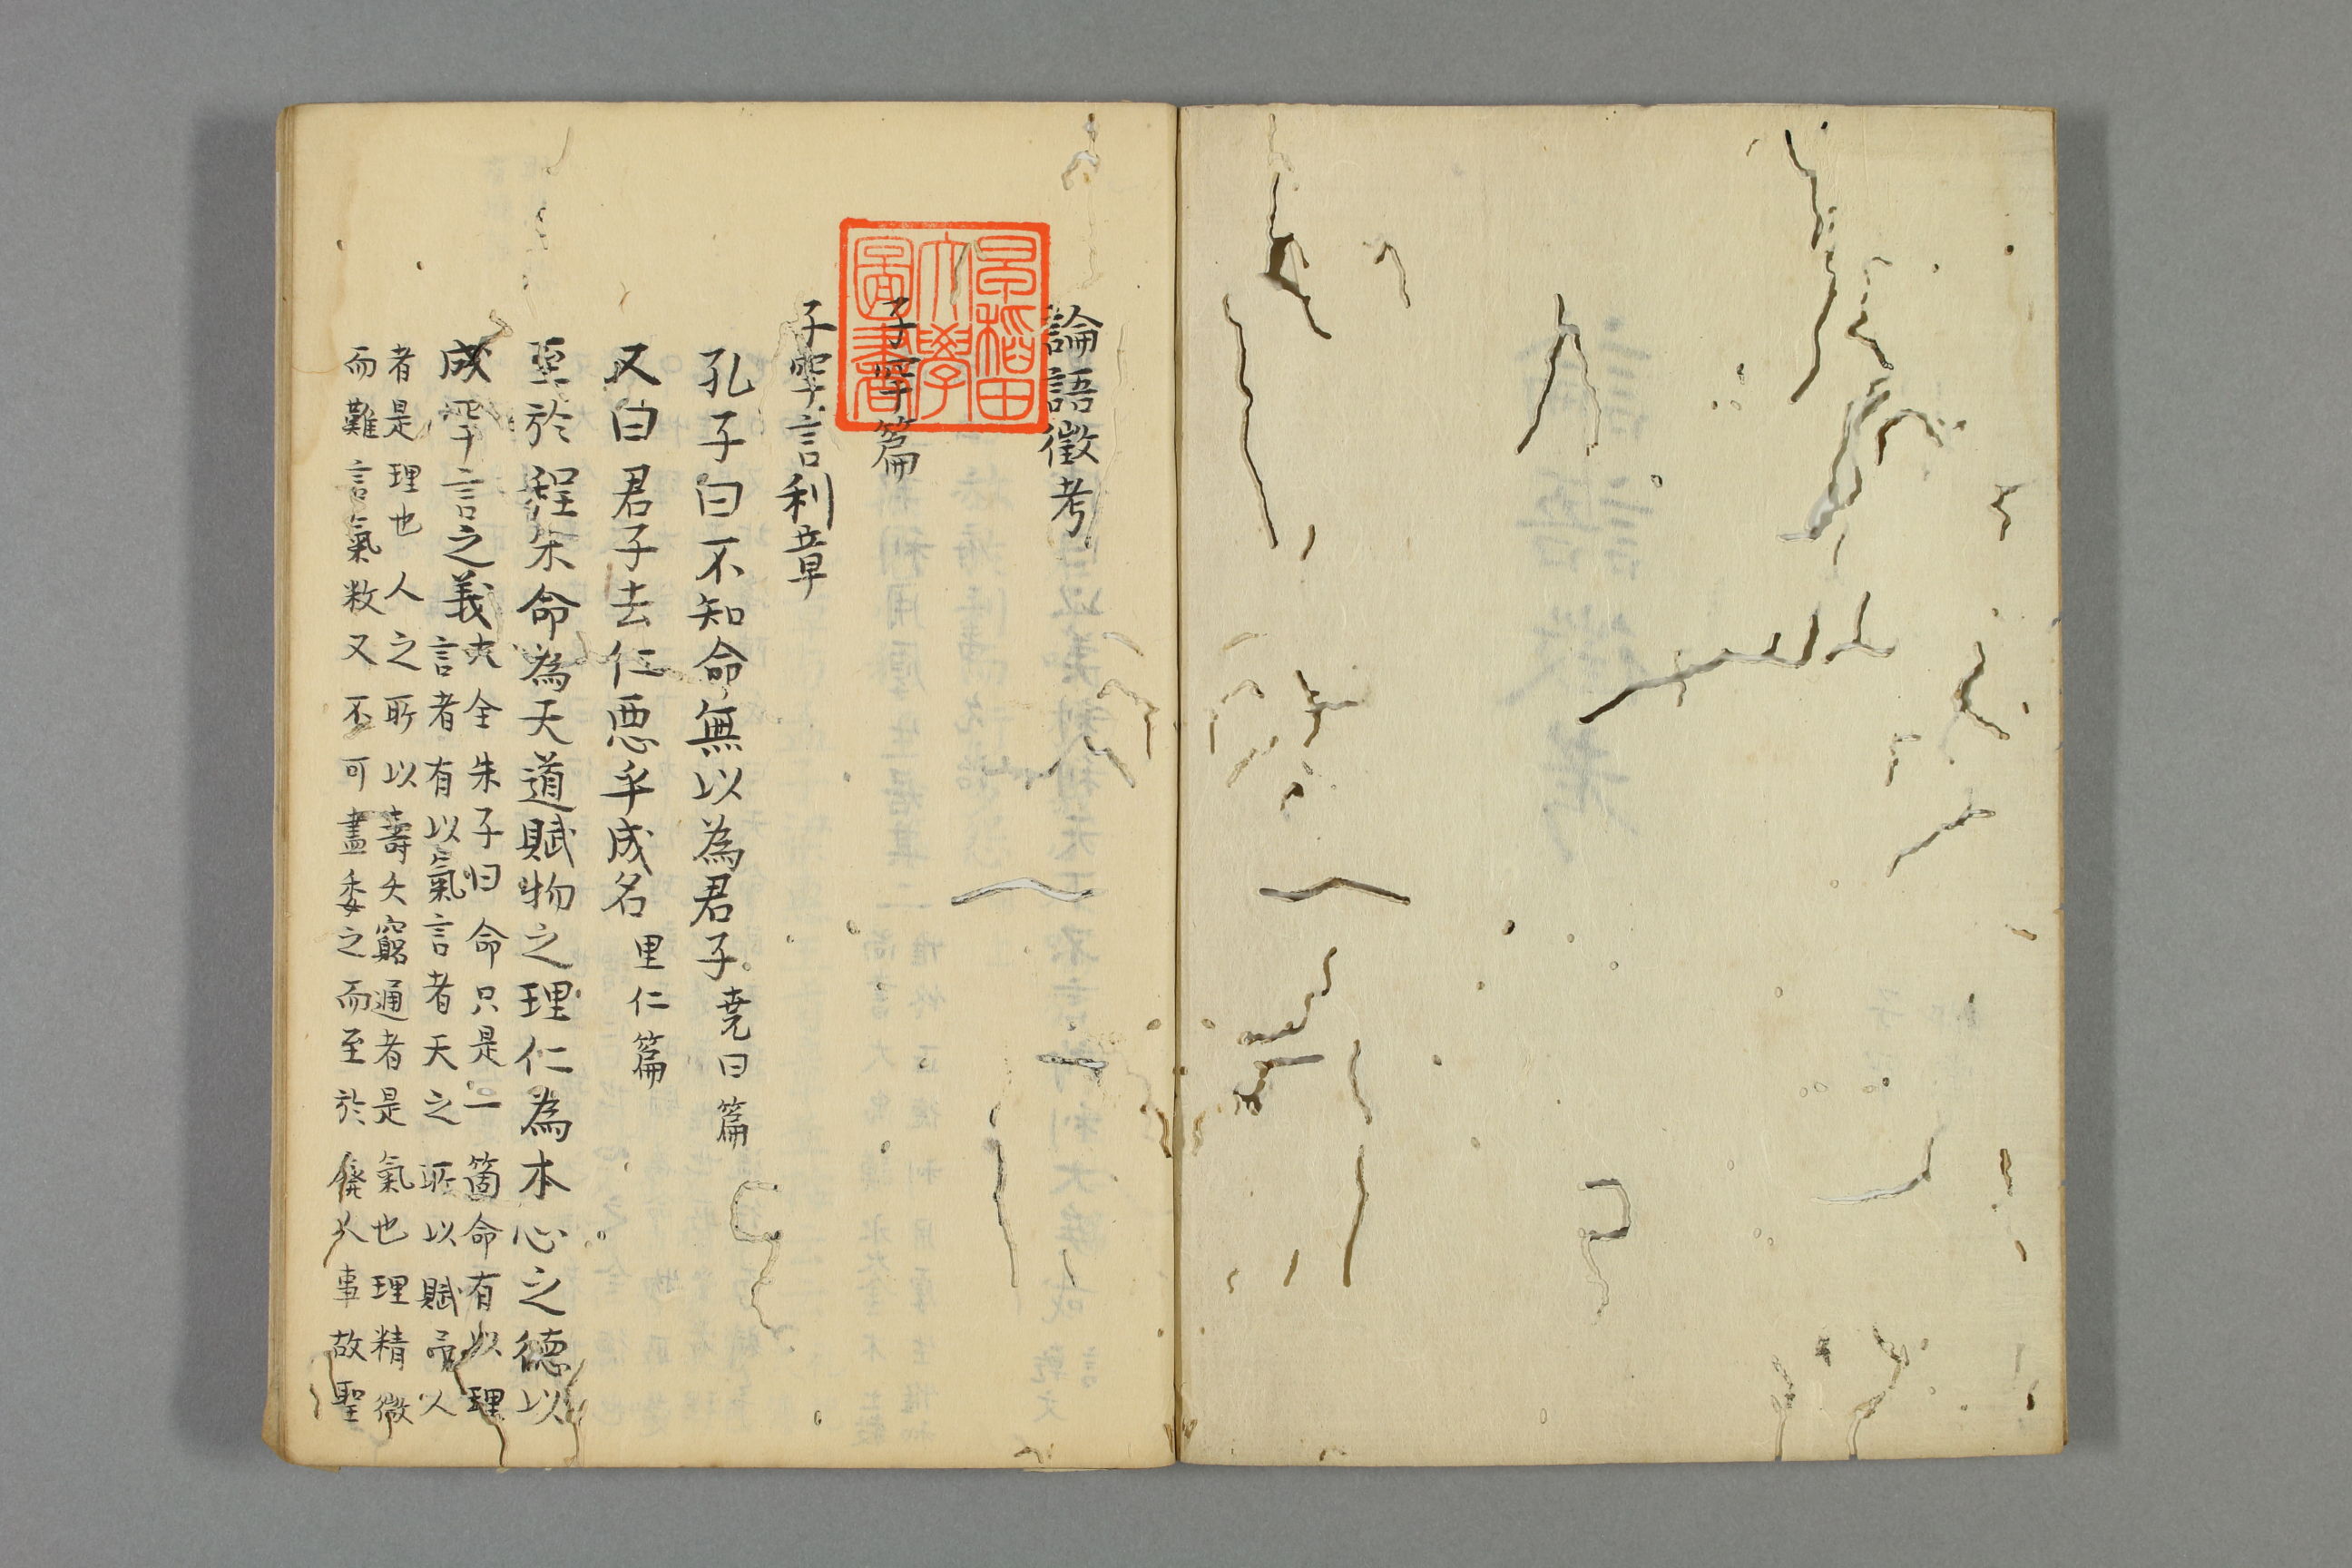 論語徴考
早稲田
大學
圖書
子罕篇
子罕言利章
孔子曰不知命無以為君子堯曰篇
又曰君子去仁悪乎成名里仁篇
至於程朱命為天道賦物之理仁為本心之德以
成罕言之義大全朱子曰命只是一箇命有以理
言者有以氣言者天之所以賦與人
者是理也人之所以壽夭窮通者是氣也理精微
而難言氣数又不可盡委之而至於廢人事故聖